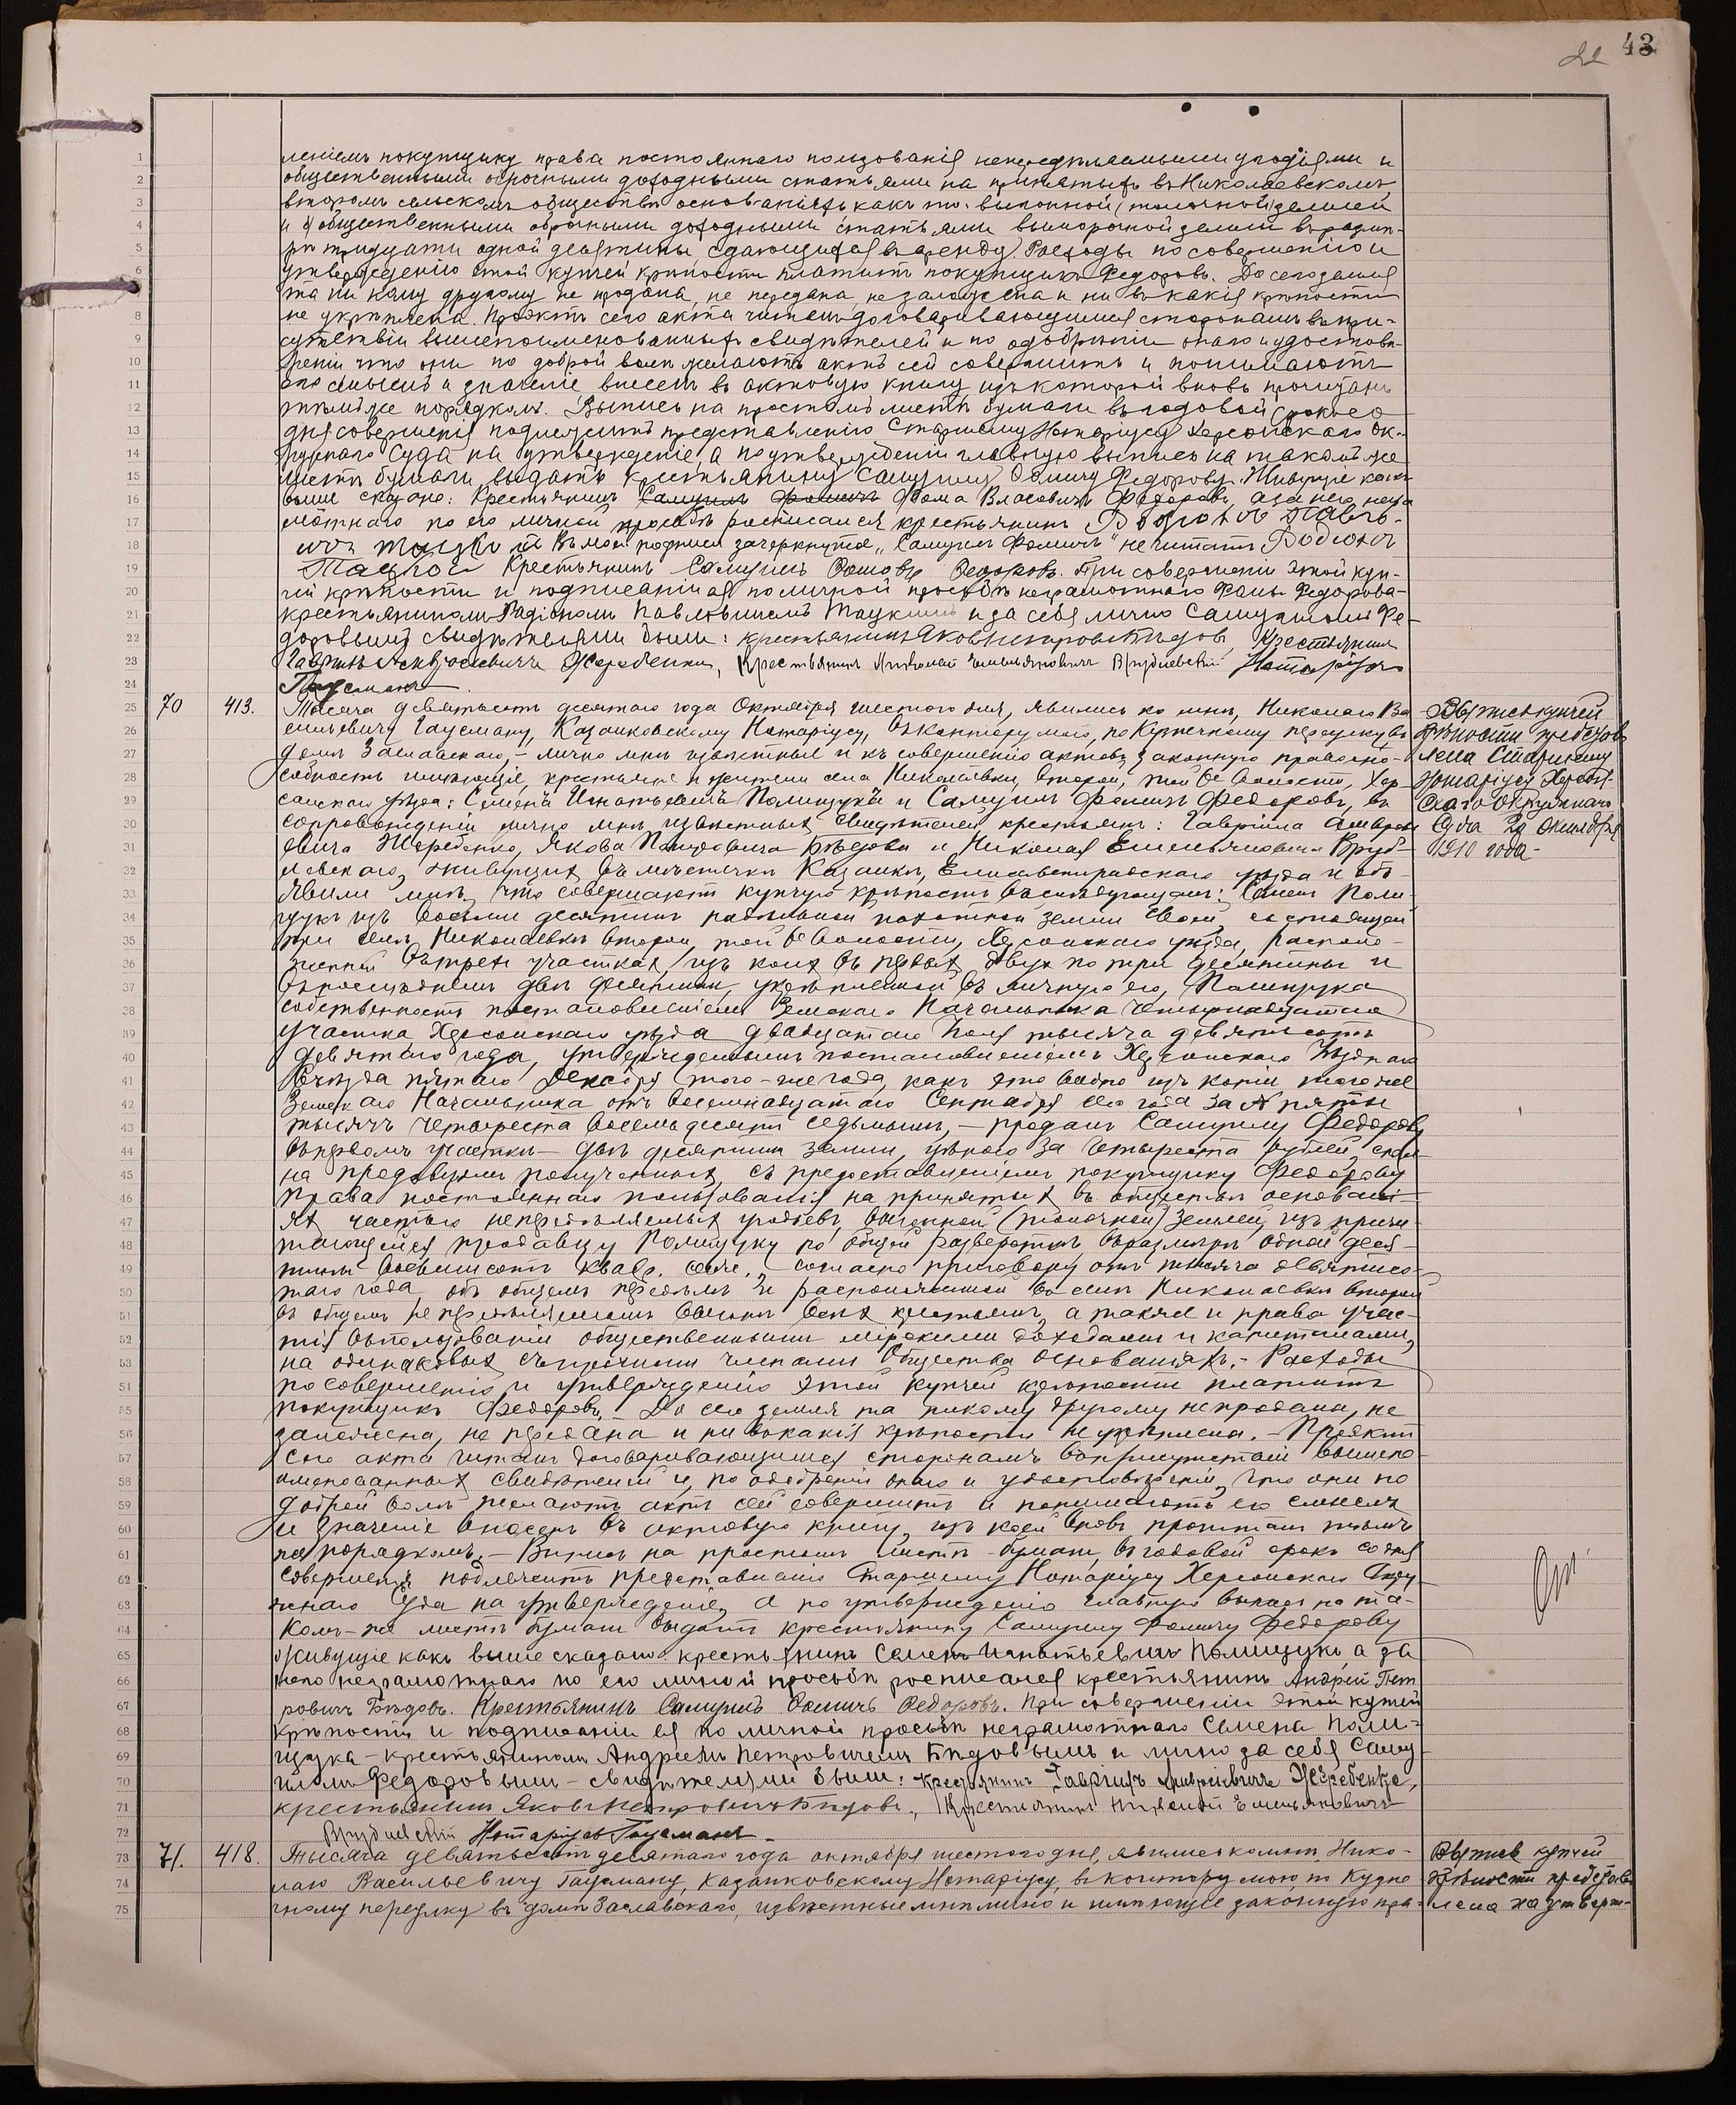 22 43
леніемъ покупщику права постояннаго пользованія непередѣляемыми угодіями и
общественными оброчными доходными статьями на принятыхъ въ Николаевскомъ
второмъ сельскомъ обществѣ основаніяхъ какъ то: выгонной (толочной) землей
и общественными оброчными доходными статьями выморочной земли въ размѣ-
рѣ тридцати одной десятины, сдающихся въ аренду. Расходы по совершенію и
утвержденію этой купчей крѣпости платитъ покупщикъ Федоровъ. До сего земля
та ни кому другому не продана, не передана, не заложена и ни въ какія крѣпости
не укрѣплена. Проэктъ сего акта читанъ договаривающимся сторонамъ въ при-
сутствіи вышепоименованныхъ свидѣтелей и по одобреніи онаго и удостовѣ-
реніи что они по доброй волѣ желаютъ актъ сей совершить и понимаютъ
его смыслъ и значеніе внесенъ въ актовую книгу, изъ которой вновь прочитанъ
тѣмъ же порядкомъ. Выпись на простомъ листѣ бумаги въ годовой срокъ со
дня совершенія подлежитъ представленію Старшему Нотаріусу Херсонскаго Ок-
ружнаго Суда на утвержденіе, а по утвержденіи главную выпись на такомъ же
листѣ бумаги выдать крестьянину Самуилу Фомичу Федорову. Живущіе какъ
выше сказано: Крестьянинъ Самуилъ Фомичъ Фома Власовичъ Федоровъ, а за него негра
мотнаго по его личной просьбѣ расписался крестьянинъ Родіонъ Павло-
вичъ Тацкій Въ моей подписи зачеркнутое "Самуилъ Фомичъ" не читать Родіонъ
Тацкій Крестьянинъ Самуилъ Фомовъ Федоровъ. При совершеніи этой куп-
чей крѣпости и подписаніи ея по личной просьбѣ неграмотнаго Фомы Федорова-
крестьяниномъ Радіономъ Павловичемъ Тацкимъ и за себя лично Самуиломъ Фе-
доровымъ свидѣтелями были: крестьянинъ Яковъ Петровъ Бѣдовъ, Крестьянинъ
Гавріилъ Жеребенко, Крестьянинъ Николай Емельяновичъ Врублевскій Нотаріусъ
Гауеманъ.
70 413. Тысяча девятьсотъ десятаго года Октября шестого дня, явились ко мнѣ, Николаю Ва
сильевичу Гауеману, Казанковскому Нотаріусу, въ контору мою, по Кузнечному переулку въ
домѣ Заславскаго, - лично мнѣ извѣстные и къ совершенію актовъ законную правоспо-
собность имѣющіе, крестьяне и жители села Николаевки второй, той же волости, Хер-
сонскаго уѣзда: Семенъ Игнатьевичъ Полищукъ и Самуилъ Фомичъ Федоровъ, въ
сопровожденіи лично мнѣ извѣстныхъ свидѣтелей крестьянъ: Гавріила Амврось
евича Жеребенко, Якова Петровича Бѣдова и Николая Емельяновича Вруб-
левскаго, живущихъ въ мѣстечкѣ Казанкѣ, Елисаветградскаго уѣзда и объ-
явили мнѣ, что совершаютъ купчую крѣпость въ слѣдующемъ: Семенъ Поли-
щукъ изъ восьми десятинъ надѣльной пахотной земли своей, состоящей
при селѣ Николаевкѣ второй, той же волости, Херсонскаго уѣзда, располо-
женной въ трехъ участкахъ, изъ коихъ въ первыхъ двухъ по три десятины и
въ послѣднемъ двѣ десятины, укрѣпленной въ личную его, Полищука
собственность постановленіемъ Земскаго Начальника четырнадцатаго
участка Херсонскаго уѣзда двадцатаго Іюля тысяча девятьсотъ
девятаго года, утвержденнымъ постановленіемъ Херсонскаго Уѣзднаго
Съѣзда пятаго Декабря того-же года, какъ это видно изъ копіи того же
Земскаго Начальника отъ восемнадцатаго Сентября сего года за № пять
тысячъ четыреста восемьдесятъ седьмымъ, - продалъ Самуилу Федорову
въ первомъ участкѣ - двѣ десятины земли, цѣною за четыреста рублей, спол-
на продавцемъ полученныхъ, съ предоставленіемъ покупщику Федорову
права постояннаго пользованія на принятыхъ въ обществѣ основані-
яхъ частью непередѣляемыхъ угодьевъ, выгонной (толочной) землей, изъ причи-
тающейся продавцу Полищуку по общей разверсткѣ, въ размѣрѣ одной деся-
тины восьмисотъ квадр. саж., согласно приговору отъ тысяча девятисо-
таго года, объ общемъ передѣлѣ и расположенной въ селѣ Николаевкѣ второй
въ общемъ непередѣляемомъ выгонѣ всѣхъ крестьянъ, а также и права учас-
тія въ пользованіи общественными мірскими доходами и капиталами,
на одинаковыхъ съ прочими членами Общества основаніяхъ. - Расходы
по совершенію и утвержденію этой купчей крѣпости платитъ
покупщикъ Федоровъ. - До сего земля та никому другому не продана, не
заложена, не передана и ни въ какія крѣпости не укрѣплена. - Проэктъ
сего акта читанъ договаривающимся сторонамъ въ присутствіи вышепо-
именованныхъ свидѣтелей и, по одобреніи онаго и удостовѣреніи, что они по
доброй волѣ желаютъ актъ сей совершить и понимаютъ его смыслъ
и значеніе внесенъ въ актовую книгу, изъ коей вновь прочитанъ тѣмъ
же порядкомъ. - Выпись на простомъ листѣ бумаги, въ годовой срокъ со дня
совершенія подлежитъ представленію Старшему Нотаріусу Херсонскаго Окру-
жнаго Суда на утвержденіе, а по утвержденію главную выпись на та-
комъ-же листѣ бумаги выдать крестьянину Самуилу Фомичу Федорову
Живущіе какъ выше сказано: крестьянинъ Семенъ Игнатьевичъ Полищукъ, а за
него неграмотнаго по его личной просьбѣ росписался крестьянинъ Андрей Пет
ровичъ Бѣдовъ. Крестьянинъ Самуилъ Фомичъ Федоровъ. При совершеніи этой купчей
крѣпости и подписаніи ея по личной просьбѣ неграмотнаго Семена Поли-
щука - крестьяниномъ Андреемъ Петровичемъ Бѣдовымъ и лично за себя Саму
иломъ Федоровымъ - свидѣтелями были: Крестьянинъ Гавріилъ Амвросіевичъ Жеребенко,
крестьянинъ Яковъ Петровичъ Бѣдовъ, Крестьянинъ Николай Емельяновичъ
Врублевскій Нотаріусъ Гауеманъ -
Выпись купчей
крѣпости представ
лена Старшему
Нотаріусу Херсон-
скаго Окружнаго
Суда 22 Октября
1910 года -
71. 418. Тысяча девятьсотъ десятаго года октября шестого дня, явились ко мнѣ, Нико-
лаю Васильевичу Гауеману, Казанковскому Нотаріусу, въ контору мою, по Кузне
чному переулку въ домѣ Заславскаго, извѣстные мнѣ лично и имѣющіе законную пра-
Выпись купчей
крѣпости представ
лена на утверж-